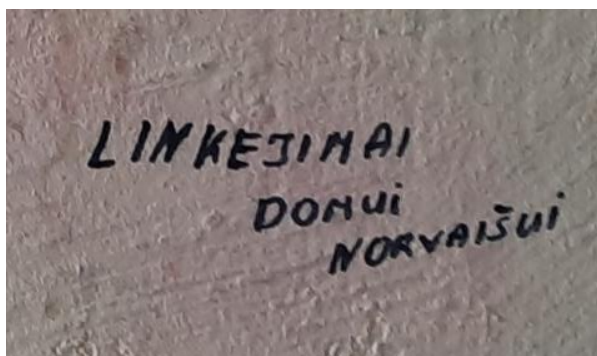 LINKEJIMAI
DOMUi
NORVAIŠUi